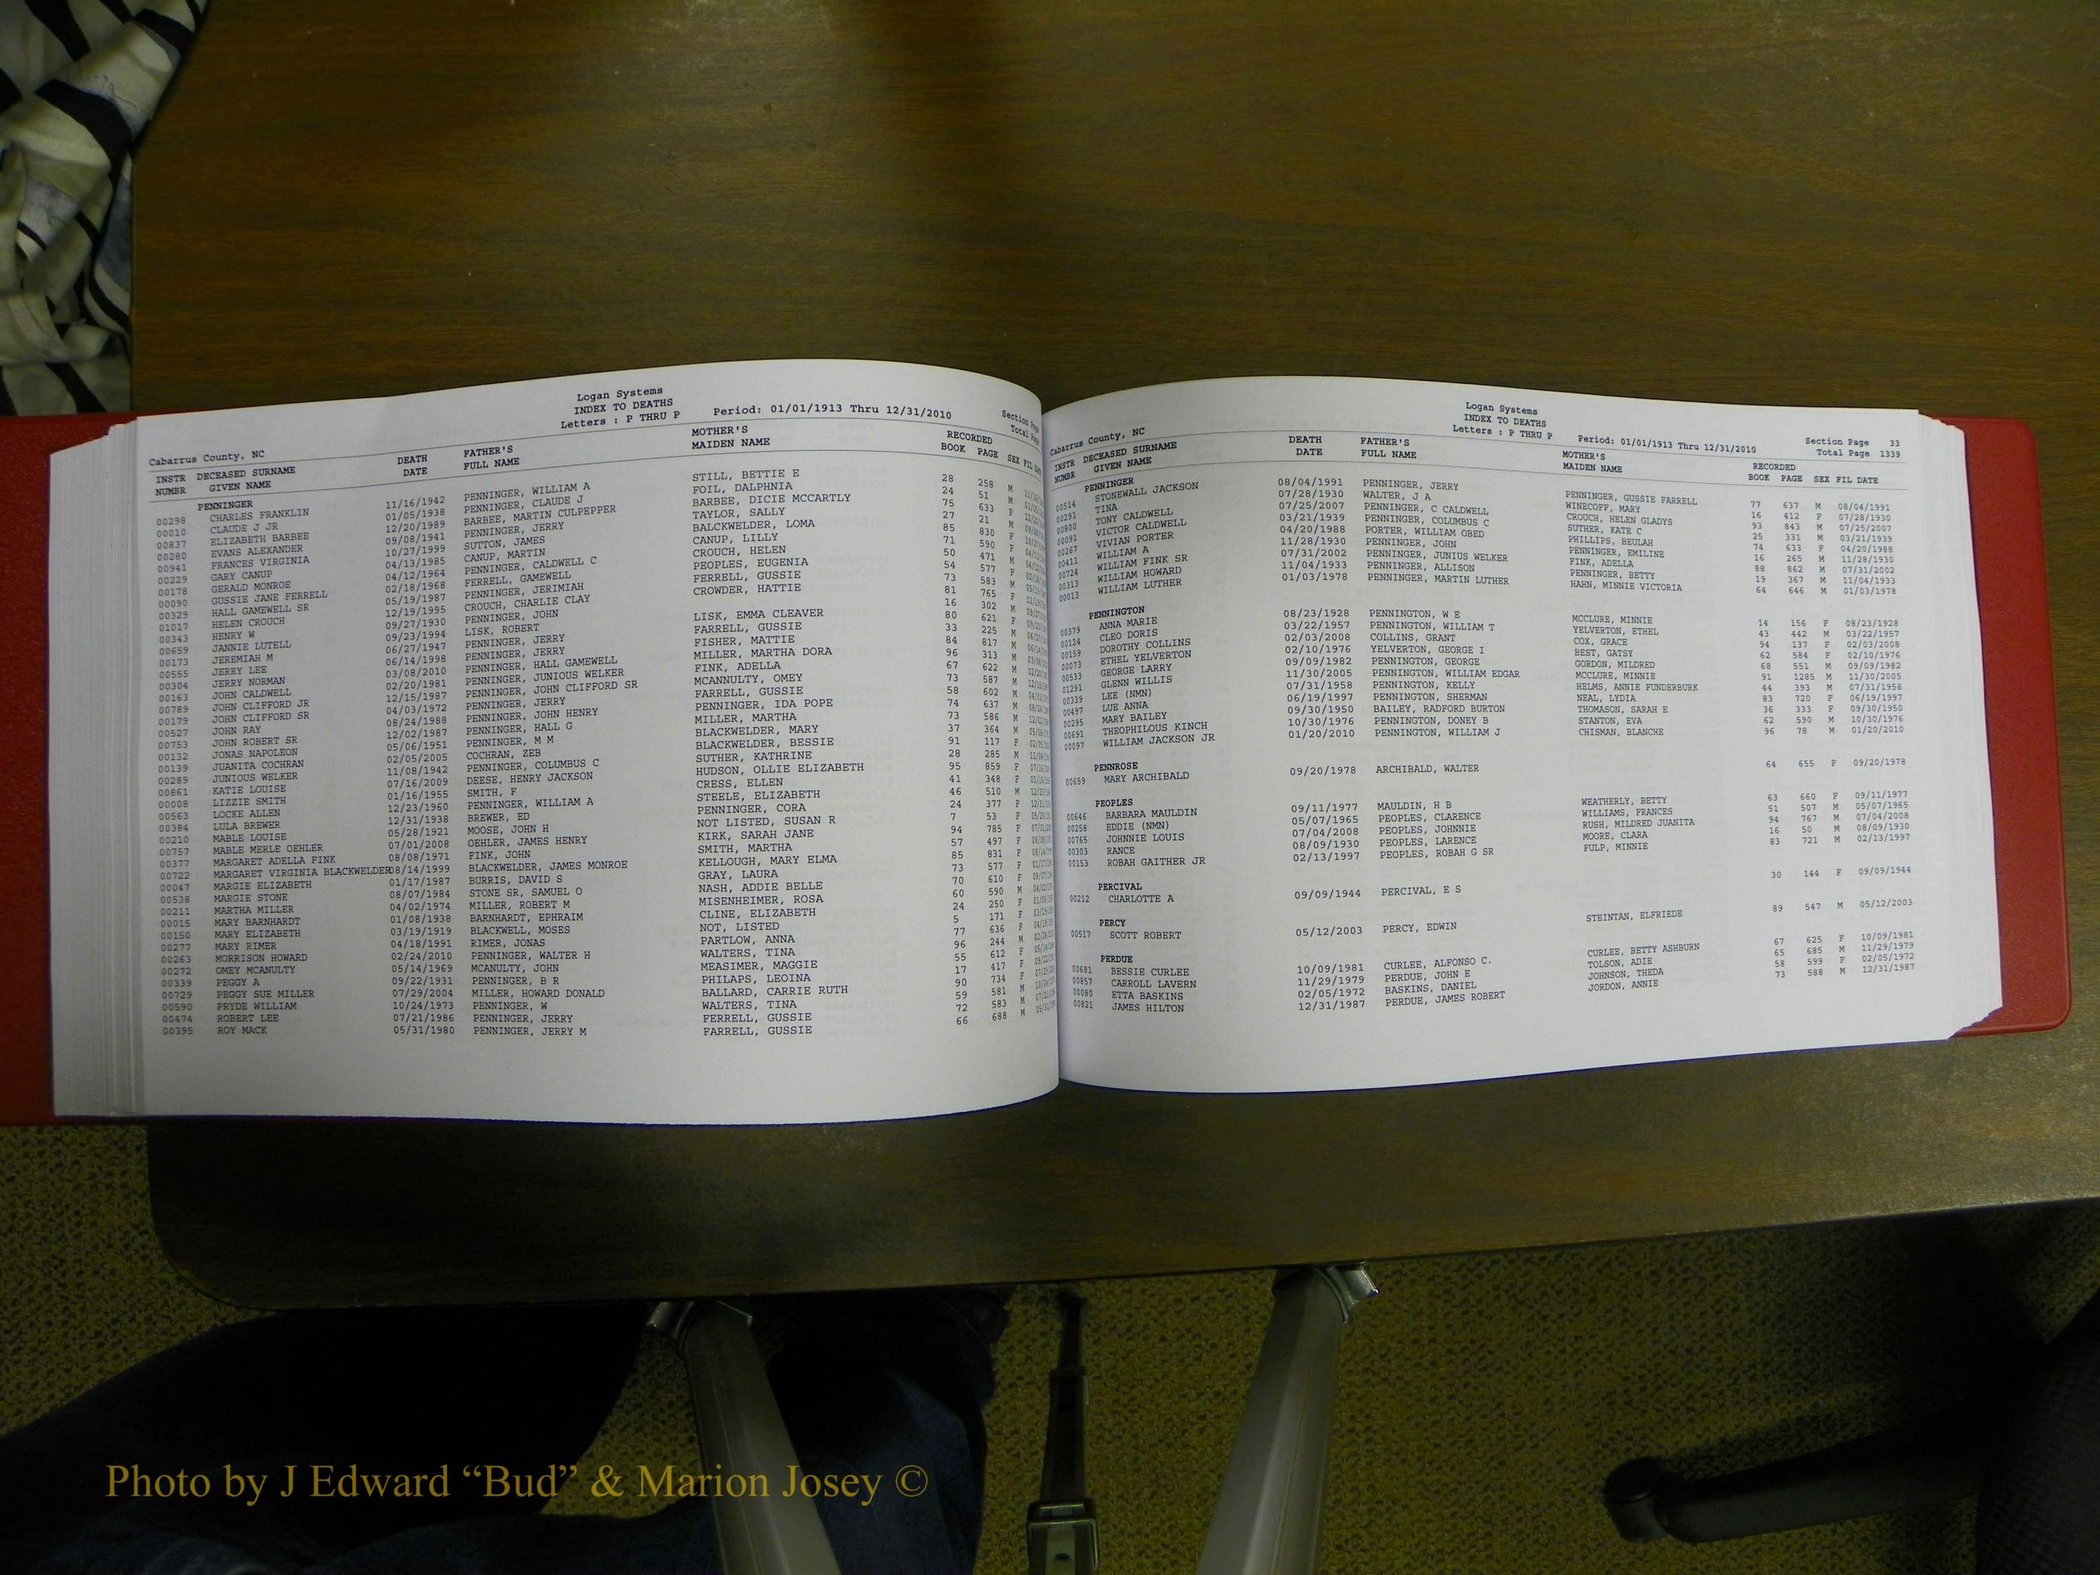 Logan Systems
INDEX TO DEATHS
Letters : P THRU P Period: 01/01/1913 Thru 12/31/2010
Cabarrus County, NC Section Page
Total Page
INSTR DECEASED SURNAME DEATH FATHER'S MOTHER'S RECORDED
NUMBR GIVEN NAME DATE FULL NAME MAIDEN NAME BOOK PAGE SEX FIL DATE
PENNINGER
00298 CHARLES FRANKLIN 11/16/1942 PENNINGER, WILLIAM A STILL, BETTIE E 28 258 M
00010 CLAUDE J JR 01/05/1938 PENNINGER, CLAUDE J FOIL, DALPHNIA 24 51 M
00837 ELIZABETH BARBEE 12/20/1989 BARBEE, MARTIN CULPEPPER BARBEE, DICIE MCCARTLY 75 633 F
00280 EVANS ALEXANDER 09/08/1941 PENNINGER, JERRY TAYLOR, SALLY 27 21 M
00941 FRANCES VIRGINIA 10/27/1999 SUTTON, JAMES BALCKWELDER, LOMA 85 830 F
00229 GARY CANUP 04/13/1985 CANUP, MARTIN CANUP, LILLY 71 590 F
00178 GERALD MONROE 04/12/1964 PENNINGER, CALDWELL C CROUCH, HELEN 50 471 M
00090 GUSSIE JANE FERRELL 02/18/1968 FERRELL, GAMEWELL PEOPLES, EUGENIA 54 577 F
00329 HALL GAMEWELL SR 05/19/1987 PENNINGER, JERIMIAH FERRELL, GUSSIE 73 583 M
01017 HELEN CROUCH 12/19/1995 CROUCH, CHARLIE CLAY CROWDER, HATTIE 81 765 F
00343 HENRY W 09/27/1930 PENNINGER, JOHN 16 302 M
00659 JANNIE LUTELL 09/23/1994 LISK, ROBERT LISK, EMMA CLEAVER 80 621 F
00173 JEREMIAH M 06/27/1947 PENNINGER, JERRY FARRELL, GUSSIE 33 225 M
00555 JERRY LEE 06/14/1998 PENNINGER, JERRY FISHER, MATTIE 84 817 M
00304 JERRY NORMAN 03/08/2010 PENNINGER, HALL GAMEWELL MILLER, MARTHA DORA 96 313 M
00163 JOHN CALDWELL 02/20/1981 PENNINGER, JUNIOUS WELKER FINK, ADELLA 67 622 M
00789 JOHN CLIFFORD JR 12/15/1987 PENNINGER, JOHN CLIFFORD SR MCANNULTY, OMEY 73 587 M
00179 JOHN CLIFFORD SR 04/03/1972 PENNINGER, JERRY FARRELL, GUSSIE 58 602 M
00527 JOHN RAY 08/24/1988 PENNINGER, JOHN HENRY PENNINGER, IDA POPE 74 637 M
00753 JOHN ROBERT SR 12/02/1987 PENNINGER, HALL G MILLER, MARTHA 73 586 M
00132 JONAS NAPOLEON 05/06/1951 PENNINGER, M M BLACKWELDER, MARY 37 364 M
00139 JUANITA COCHRAN 02/05/2005 COCHRAN, ZEB BLACKWELDER, BESSIE 91 117 F
00289 JUNIOUS WELKER 11/08/1942 PENNINGER, COLUMBUS C SUTHER, KATHRINE 28 285 M
00861 KATIE LOUISE 07/16/2009 DEESE, HENRY JACKSON HUDSON, OLLIE ELIZABETH 95 859 F
00008 LIZZIE SMITH 01/16/1955 SMITH, F CRESS, ELLEN 41 348 F
00563 LOCKE ALLEN 12/23/1960 PENNINGER, WILLIAM A STEELE, ELIZABETH 46 510 M
00384 LULA BREWER 12/31/1938 BREWER, ED PENNINGER, CORA 24 377 F
00210 MABLE LOUISE 05/28/1921 MOOSE, JOHN H NOT LISTED, SUSAN R 7 53 F
00757 MABLE MERLE OEHLER 07/01/2008 OEHLER, JAMES HENRY KIRK, SARAH JANE 94 785 F
00377 MARGARET ADELLA FINK 08/08/1971 FINK, JOHN SMITH, MARTHA 57 497 F
00722 MARGARET VIRGINIA BLACKWELDER08/14/1999 BLACKWELDER, JAMES MONROE KELLOUGH, MARY ELMA 85 831 F
00047 MARGIE ELIZABETH 01/17/1987 BURRIS, DAVID S GRAY, LAURA 73 577 F
00538 MARGIE STONE 08/07/1984 STONE SR, SAMUEL O NASH, ADDIE BELLE 70 610 F
00211 MARTHA MILLER 04/02/1974 MILLER, ROBERT M MISENHEIMER, ROSA 60 590 M
00015 MARY BARNHARDT 01/08/1938 BARNHARDT, EPHRAIM CLINE, ELIZABETH 24 250 F
00150 MARY ELIZABETH 03/19/1919 BLACKWELL, MOSES NOT, LISTED 5 171 F
00277 MARY RIMER 04/18/1991 RIMER, JONAS PARTLOW, ANNA 77 636 F
00263 MORRISON HOWARD 02/24/2010 PENNINGER, WALTER H WALTERS, TINA 96 244 M
00272 OMEY MCANULTY 05/14/1969 MCANULTY, JOHN MEASIMER, MAGGIE 55 612 F
00339 PEGGY A 09/22/1931 PENNINGER, B R PHILAPS, LEOINA 17 417 F
00729 PEGGY SUE MILLER 07/29/2004 MILLER, HOWARD DONALD BALLARD, CARRIE RUTH 90 734 F
00590 PRYDE WILLIAM 10/24/1973 PENNINGER, W WALTERS, TINA 59 581 M
00474 ROBERT LEE 07/21/1986 PENNINGER, JERRY FERRELL, GUSSIE 72 583 M
00395 ROY MACK 05/31/1980 PENNINGER, JERRY M FARRELL, GUSSIE 66 688 M
Logan Systems
INDEX TO DEATHS
Letters : P THRU P Period: 01/01/1913 Thru 12/31/2010
Cabarrus County, NC Section Page 33
Total Page 1339
INSTR DECEASED SURNAME DEATH FATHER'S MOTHER'S RECORDED
NUMBR GIVEN NAME DATE FULL NAME MAIDEN NAME BOOK PAGE SEX FIL DATE
PENNINGER
00514 STONEWALL JACKSON 08/04/1991 PENNINGER, JERRY PENNINGER, GUSSIE FARRELL 77 637 M 08/04/1991
00291 TINA 07/28/1930 WALTER, J A WINECOFF, MARY 16 412 F 07/28/1930
00800 TONY CALDWELL 07/25/2007 PENNINGER, C CALDWELL CROUCH, HELEN GLADYS 93 843 M 07/25/2007
00091 VICTOR CALDWELL 03/21/1939 PENNINGER, COLUMBUS C SUTHER, KATE C 25 331 M 03/21/1939
00267 VIVIAN PORTER 04/20/1988 PORTER, WILLIAM OBED PHILLIPS, BEULAH 74 633 F 04/20/1988
00411 WILLIAM A 11/28/1930 PENNINGER, JOHN PENNINGER, EMILINE 16 265 M 11/28/1930
00724 WILLIAM FINK SR 07/31/2002 PENNINGER, JUNIUS WELKER FINK, ADELLA 88 862 M 07/31/2002
00313 WILLIAM HOWARD 11/04/1933 PENNINGER, ALLISON PENNINGER, BETTY 19 367 M 11/04/1933
00013 WILLIAM LUTHER 01/03/1978 PENNINGER, MARTIN LUTHER HAHN, MINNIE VICTORIA 64 646 M 01/03/1978
PENNINGTON
00379 ANNA MARIE 08/23/1928 PENNINGTON, W E MCCLURE, MINNIE 14 156 F 08/23/1928
00124 CLEO DORIS 03/22/1957 PENNINGTON, WILLIAM T YELVERTON, ETHEL 43 442 M 03/22/1957
00159 DOROTHY COLLINS 02/03/2008 COLLINS, GRANT COX, GRACE 94 137 F 02/03/2008
00073 ETHEL YELVERTON 02/10/1976 YELVERTON, GEORGE I BEST, GATSY 62 584 F 02/10/1976
00533 GEORGE LARRY 09/09/1982 PENNINGTON, GEORGE GORDON, MILDRED 68 551 M 09/09/1982
01291 GLENN WILLIS 11/30/2005 PENNINGTON, WILLIAM EDGAR MCCLURE, MINNIE 91 1285 M 11/30/2005
00339 LEE (NMN) 07/31/1958 PENNINGTON, KELLY HELMS, ANNIE FUNDERBURK 44 393 M 07/31/1958
00497 LUE ANNA 06/19/1997 PENNINGTON, SHERMAN NEAL, LYDIA 83 720 F 06/19/1997
00295 MARY BAILEY 09/30/1950 BAILEY, RADFORD BURTON THOMASON, SARAH E 36 333 F 09/30/1950
00691 THEOPHILOUS KINCH 10/30/1976 PENNINGTON, DONEY B STANTON, EVA 62 590 M 10/30/1976
00097 WILLIAM JACKSON JR 01/20/2010 PENNINGTON, WILLIAM J CHISMAN, BLANCHE 96 78 M 01/20/2010
PENNROSE
00659 MARY ARCHIBALD 09/20/1978 ARCHIBALD, WALTER 64 655 F 09/20/1978
PEOPLES
00646 BARBARA MAULDIN 09/11/1977 MAULDIN, H B WEATHERLY, BETTY 63 660 F 09/11/1977
00258 EDDIE (NMN) 05/07/1965 PEOPLES, CLARENCE WILLIAMS, FRANCES 51 507 M 05/07/1965
00765 JOHNNIE LOUIS 07/04/2008 PEOPLES, JOHNNIE RUSH, MILDRED JUANITA 94 767 M 07/04/2008
00303 RANCE 08/09/1930 PEOPLES, LARENCE MOORE, CLARA 16 50 M 08/09/1930
00153 ROBAH GAITHER JR 02/13/1997 PEOPLES, ROBAH G SR FULP, MINNIE 83 721 M 02/13/1997
PERCIVAL
00212 CHARLOTTE A 09/09/1944 PERCIVAL, E S 30 144 F 09/09/1944
PERCY
00517 SCOTT ROBERT 05/12/2003 PERCY, EDWIN STEINTAN, ELFRIEDE 89 547 M 05/12/2003
PERDUE
00681 BESSIE CURLEE 10/09/1981 CURLEE, ALFONSO C. CURLEE, BETTY ASHBURN 67 625 F 10/09/1981
00857 CARROLL LAVERN 11/29/1979 PERDUE, JOHN E TOLSON, ADIE 65 685 M 11/29/1979
00080 ETTA BASKINS 02/05/1972 BASKINS, DANIEL JOHNSON, THEDA 58 599 F 02/05/1972
00821 JAMES HILTON 12/31/1987 PERDUE, JAMES ROBERT JORDON, ANNIE 73 588 M 12/31/1987
Photo by J Edward “Bud” & Marion Josey ©